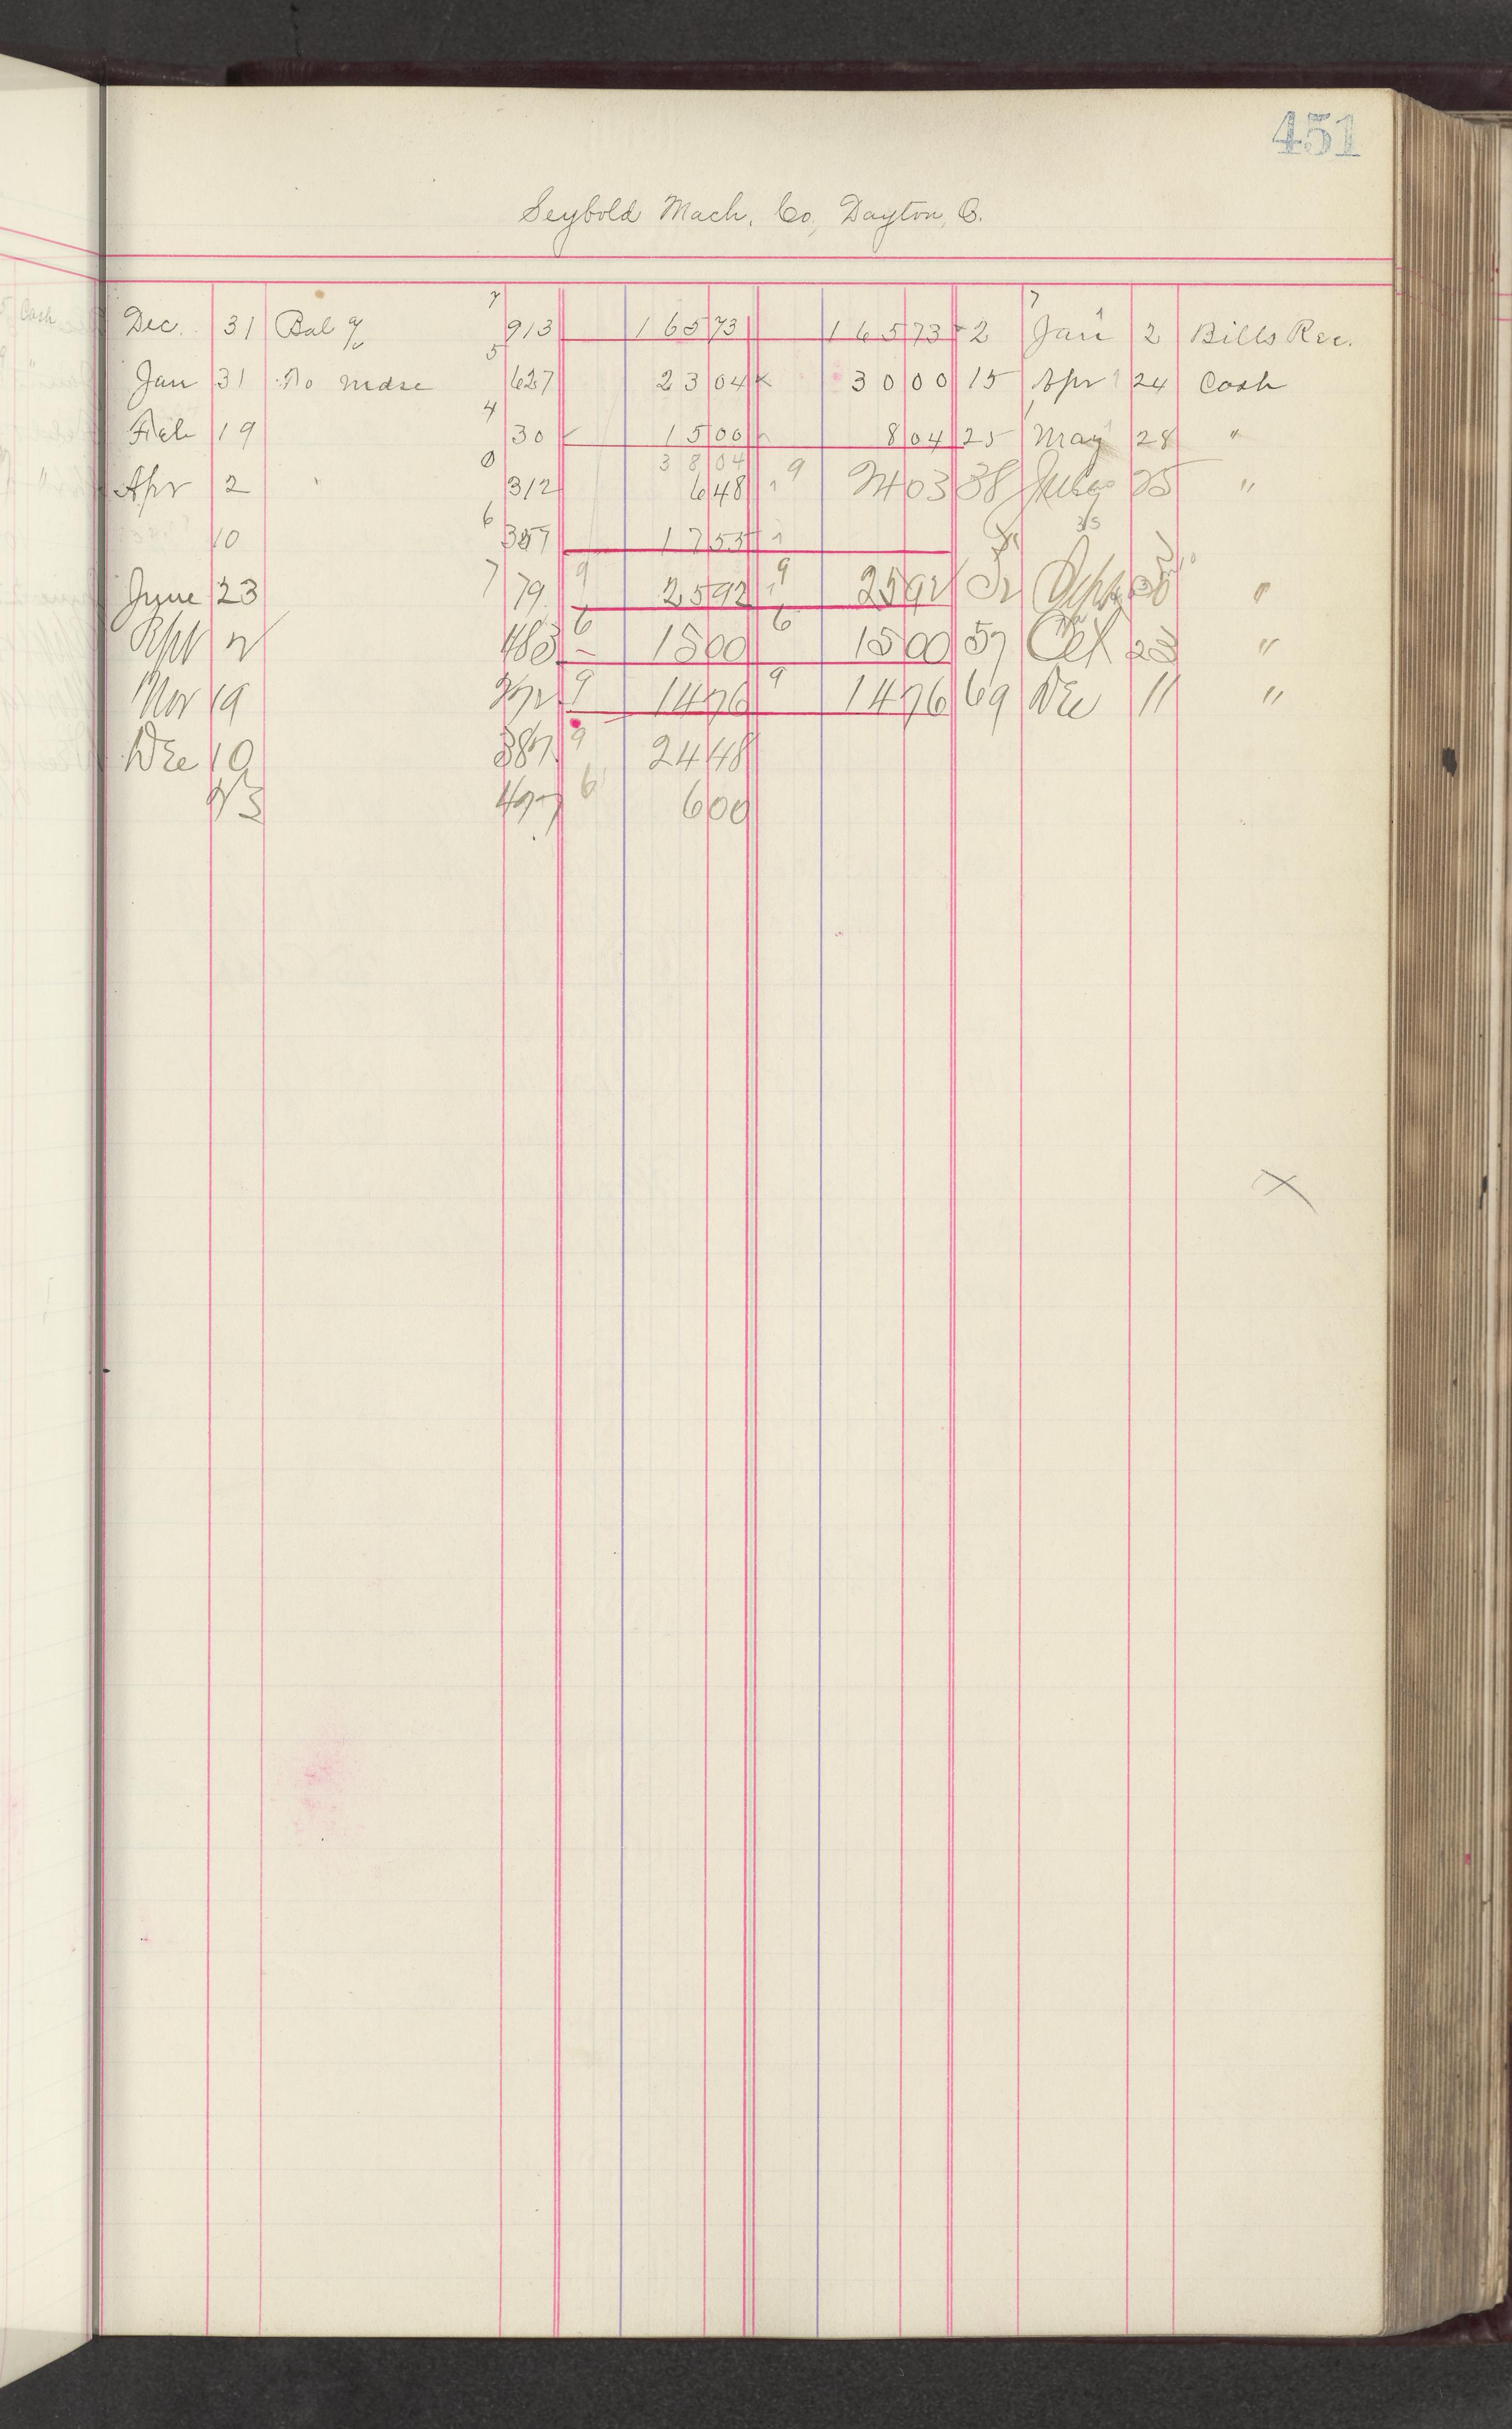 451
Seybold Mach. Co, Dayton, O.
Dec. 31 Bal 913 165 73 165 73 2 Jan 2 Bills Rec.
Jan 31 To mdse 627 23 04 30 00 15 Apr 24 Cash
Feb 19 30 15 00 8 04 25 May 28 "
38 04
Apr 2 312 6 48 9 24 03 38 July 25 "
10 357 17 55
June 23 79 9 25 92 9 25 92 Sept 30 "
Sept 2 483 6 15 00 6 15 00 57 Oct 23 "
Nov 19 272 9 14 76 9 14 76 69 Dec 11 "
Dec 10 387 9 24 48
23 477 6 6 00